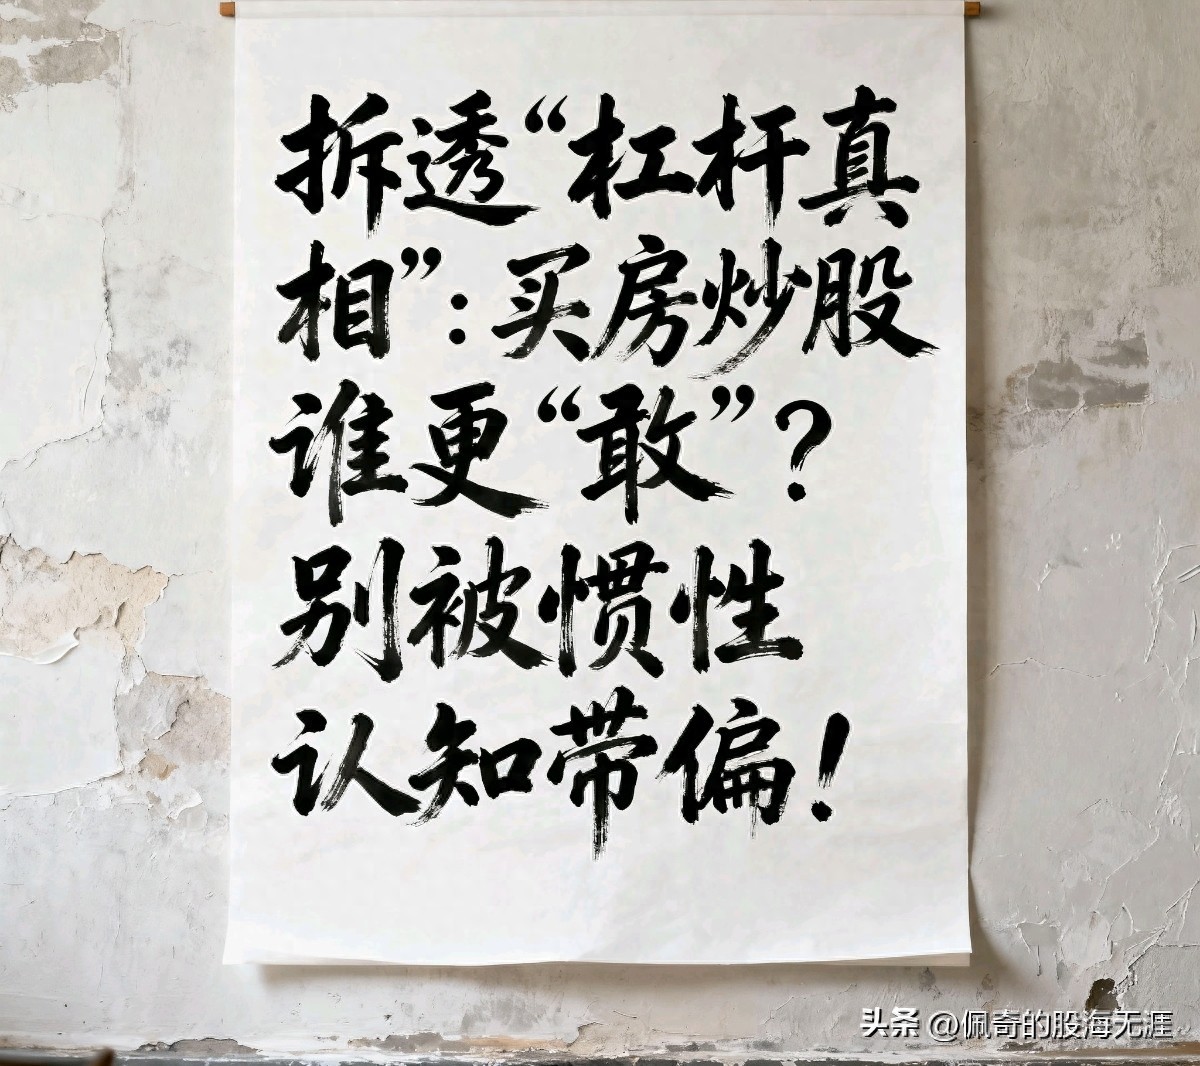 拆透“杠杆真
相”：买房炒股
谁更“敢”？
别被惯性
认知带偏！
头条 @佩奇的股海无涯